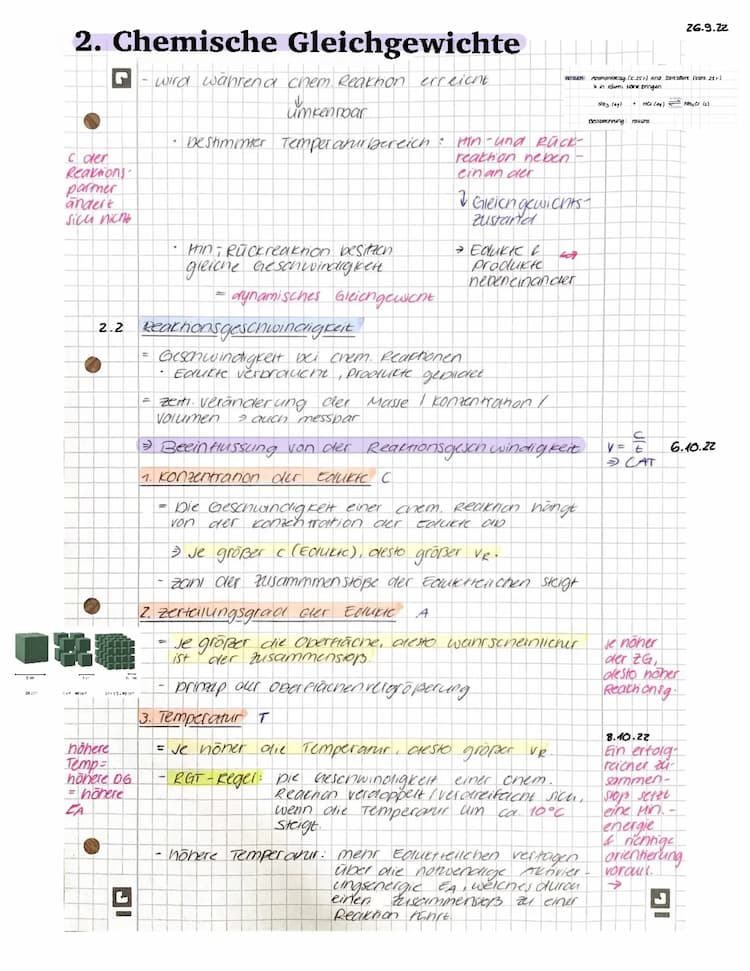 26.9.22
2. Chemische Gleichgewichte
- wird während chem. Reaktion erreicht
↓
umkehrbar
NH₃ (aq) + HCl (aq) ⇌ NH₄Cl (s)
• bestimmter Temperaturbereich : Hin- und Rück-
reaktion neben-
einander
c der
Reaktions-
partner
ändert
sich nicht
↓ Gleichgewichts-
zustand
• Hin-, Rückreaktion besitzen
gleiche Geschwindigkeit
→ Edukte &
Produkte
nebeneinander
= dynamisches Gleichgewicht
2.2 Reaktionsgeschwindigkeit
= Geschwindigkeit bei chem. Reaktionen
• Edukte verbraucht, Produkte gebildet
= zeitl. Veränderung der Masse / Konzentration /
Volumen → auch messbar
⇒ Beeinflussung von der Reaktionsgeschwindigkeit
v = c/t
⇒ CAT
6.10.22
1. Konzentration der Edukte C
= Die Geschwindigkeit einer chem. Reaktion hängt
von der Konzentration der Edukte ab
⇒ Je größer c (Edukte), desto größer vR.
- Zahl der Zusammmenstöße der Edukteilchen steigt
2. Zerteilungsgrad der Edukte A
= Je größer die Oberfläche, desto wahrscheinlicher
ist der Zusammenstoß.
- Prinzip der Oberflächenvergrößerung
je höher
der ZG,
desto höher
Reaktionsg.
3. Temperatur T
= Je höher die Temperatur, desto größer vR.
- RGT-Regel: Die Geschwindigkeit einer chem.
Reaktion verdoppelt/verdreifacht sich,
wenn die Temperatur um ca. 10°C
steigt.
höhere
Temp=
höhere DG
= höhere
EA
8.10.22
Ein erfolg-
reicher Zu-
sammen-
stoß setzt
eine Min.-
energie
& richtige
orientierung
voraus.
→
- höhere Temperatur: mehr Edukteilchen verfügen
über die notwendige Aktivier-
ungsenergie EA, welches durch
einen Zusammenstoß zu einer
Reaktion führt.